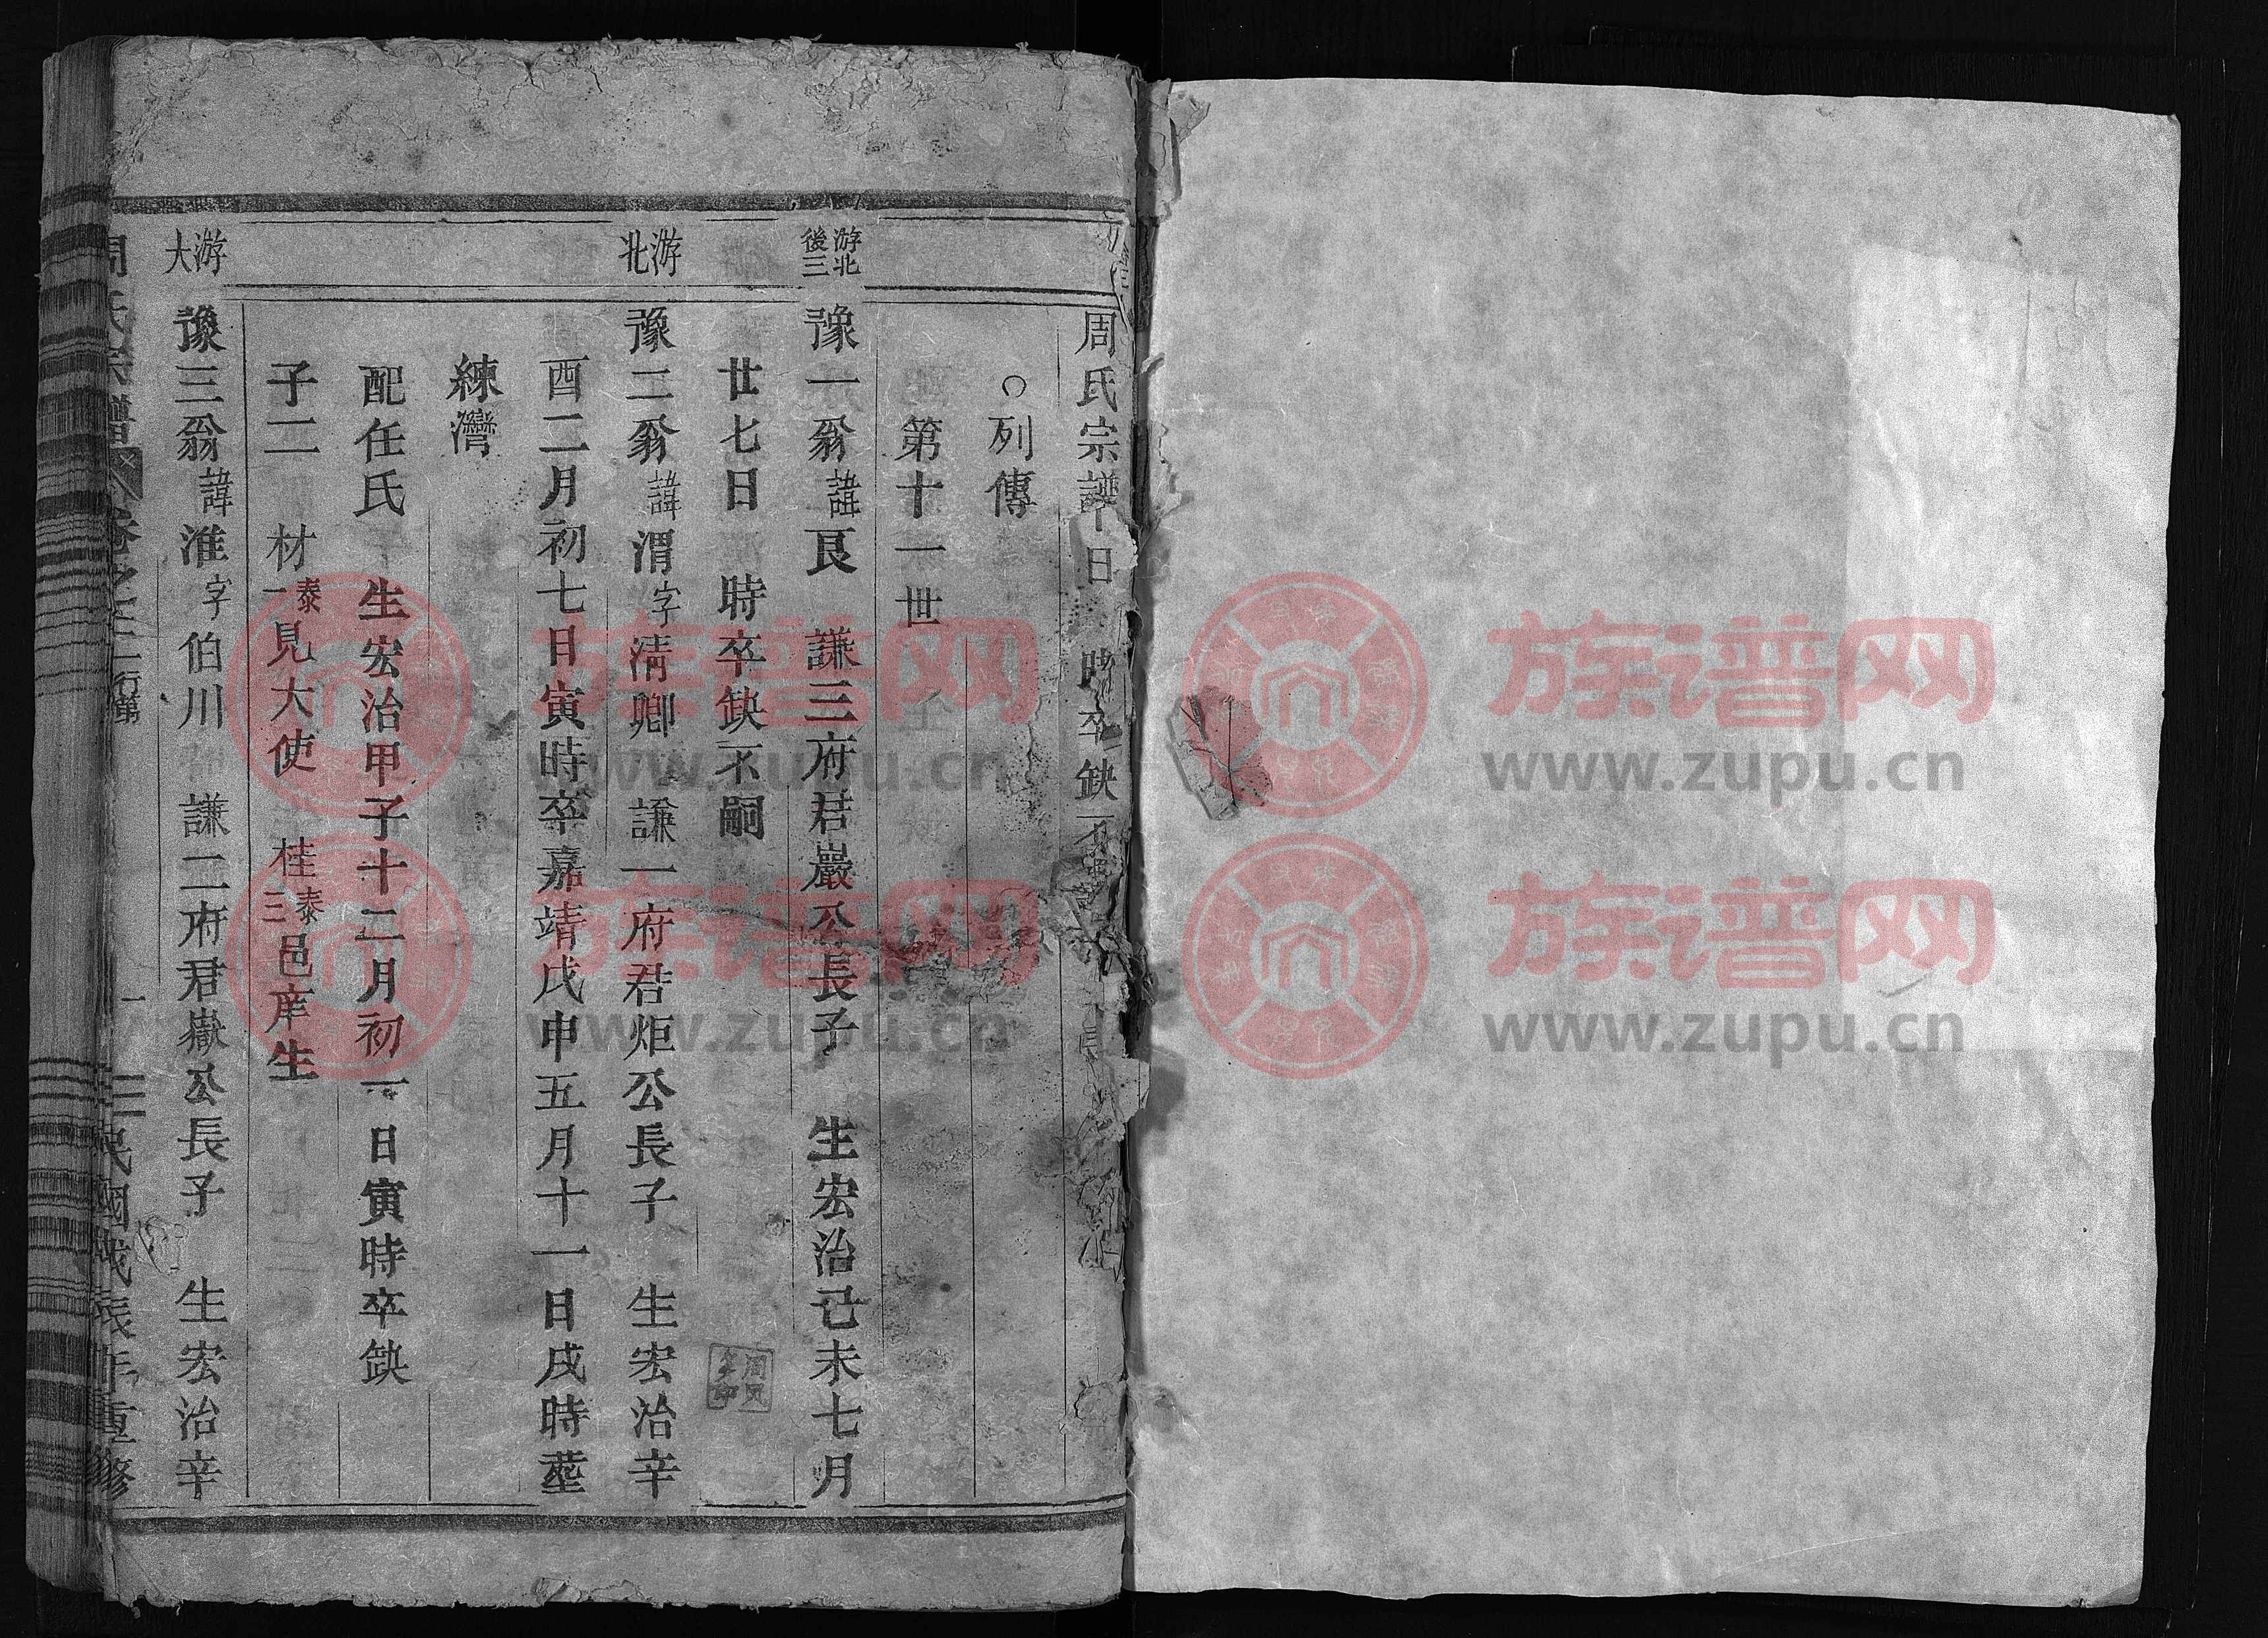 周氏宗譜
○列傳
第十一世
游北後三
豫一翁諱艮 謙三府君巖公長子 生宏治己未七月
廿七日 時卒缺不嗣
游北
豫二翁諱渭字清卿 謙一府君炬公長子 生宏治辛
酉二月初七日寅時卒嘉靖戊申五月十一日戌時葬
練灣
配任氏 生宏治甲子十二月初一日寅時卒缺
子二 材泰一見大使 桂泰三邑庠生
游大
豫三翁諱淮字伯川 謙二府君嶽公長子 生宏治辛
周氏宗譜 卷之 行第 民國 重修
族谱网
www.zupu.cn
族谱网
www.zupu.cn
族谱网
www.zupu.cn
族谱网
www.zupu.cn